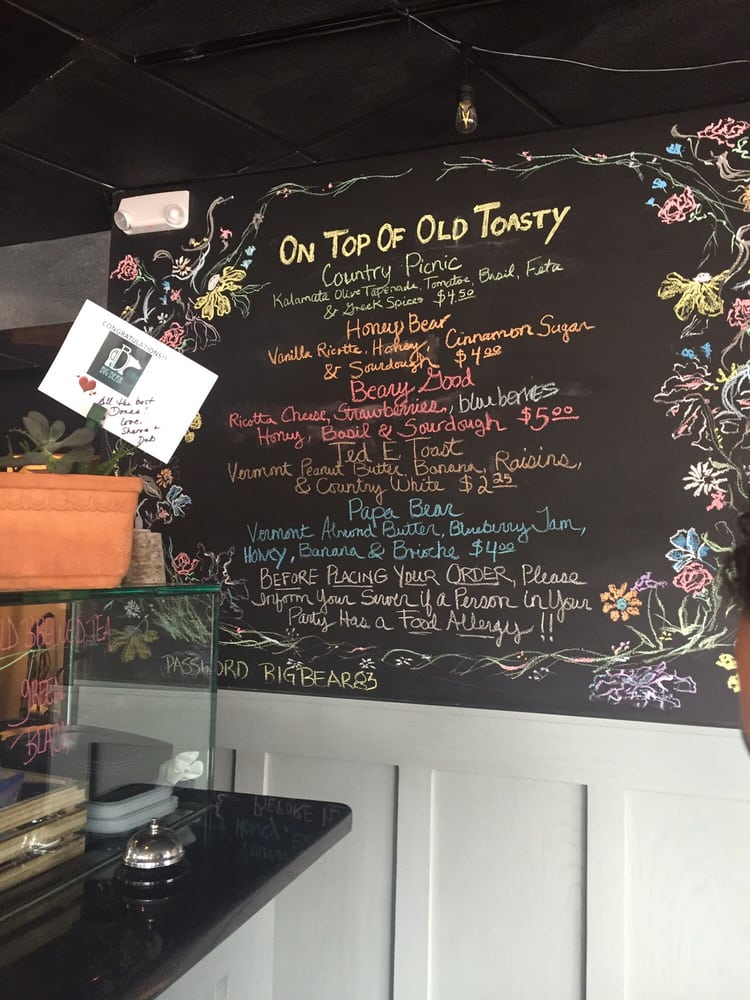 ON TOP OF OLD TOASTY
Country Picnic
Kalamata Olive Tapenade, Tomatoe, Basil, Feta
& Greek Spices $4.50
Honey Bear
Vanilla Ricotta, Honey, Cinnamon Sugar
& Sourdough $4.00
Beary Good
Ricotta Cheese, Strawberries, blueberries
Honey, Basil & Sourdough $5.00
Ted E Toast
Vermont Peanut Butter, Banana, Raisins,
& Country White $2.25
Papa Bear
Vermont Almond Butter, Blueberry Jam,
Honey, Banana & Brioche $4.00
BEFORE PLACING YOUR ORDER, Please
Inform Your Server if a Person in Your
Party Has a Food Allergy !!
PASSWORD BIGBEAR83
CONGRATULATIONS!!
BIG BEAR
All the best
Donna!
Love,
Shawna &
Deb
BREWED TEA
GREEN
BLACK